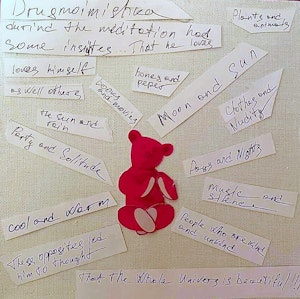 during the meditation had
some insites... That he loves
loves himself
as well others
the sun and
rain
Party and Solitude
cool and warm
These opposites led
him to thought
books
and movies
honey and
pepper
Moon and Sun
Plants and
animals
Clothes and
Nudity
Days and Nights
music and
silence
People who are kind
and unkind
That the Whole Univers is beautiful!!